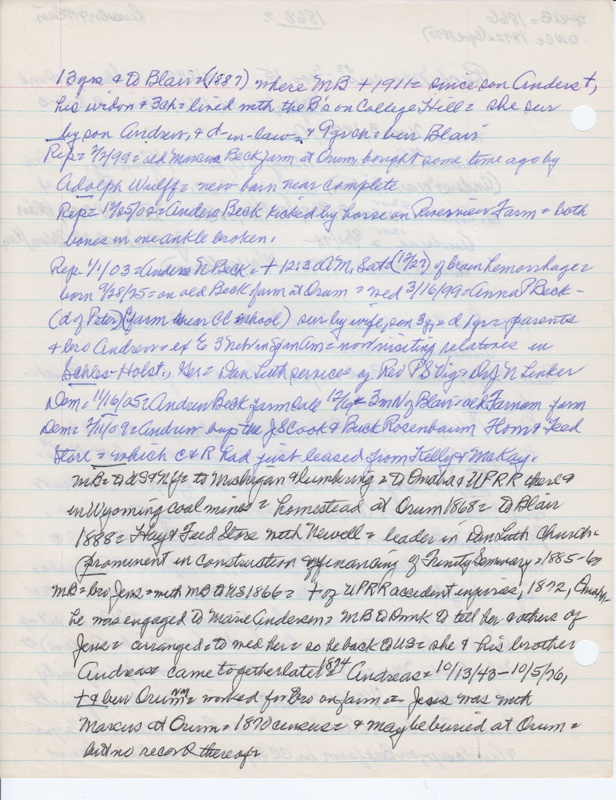 1868 =
13 yrs & to Blair = (1887) where MB + 1911 = since son Anders +,
his widow & 3 ch = lived with the B's on College Hill = she sur
by son Andrew, & d-in-law, & 9 grch = bur Blair
Rep = 7/7/99 = old Marcus Beck farm at Orum bought some time ago by
Adolph Wulff = new barn near complete
Rep = 11/25/02 = Anders Beck kicked by horse on Riverview Farm = both
bones in one ankle broken.
Rep 1/1/03 = Anders N Beck = + 12:30 A.M. Satd (12/27) of brain hemorrhage =
born 9/28/75 = on old Beck farm at Orum = wed 3/16/99 = Anna P Beck -
(d of Peter) (farm near CC school) sur by wife, son 3 y, = d 1 yr = parents
& bro Andrew = ex now visiting relatives in
Schles-Holst. Dan Luth services by Rev P S Vig = J N Lenker
Dem = 11/16/05 = Andrew Beck farm sale 3 m N of Blair = old Farnam farm
Dem = Andrew buys the J S Cook & Buck Rosenbaum Flour & Feed
Store = which C & R had just leased from Kelly & McKay.
MB = to US & NY = to Michigan & lumbering = to Omaha & UPRR there &
in Wyoming coal mines = homestead at Orum 1868 = to Blair
1888 = Hay & Feed Store with Newell = leader in Dan Luth Church =
prominent in construction & financing of Trinity Seminary = 1885-6 =
MB = bro Jens = with MB to US 1866 = + of UPRR accident injuries, 1872, Omaha
he was engaged to Marie Andersen = MB to Dnmk to tell her & others of
Jens = arranged to wed her = so he back to US = she & his brother
Andreas came together late 1874 = Andreas = 10/13/43 - 10/5/76,
+ & bur Orum = worked for bro on farm = Jens was with
Marcus at Orum = 1870 census = & may be buried at Orum =
but no record thereof =